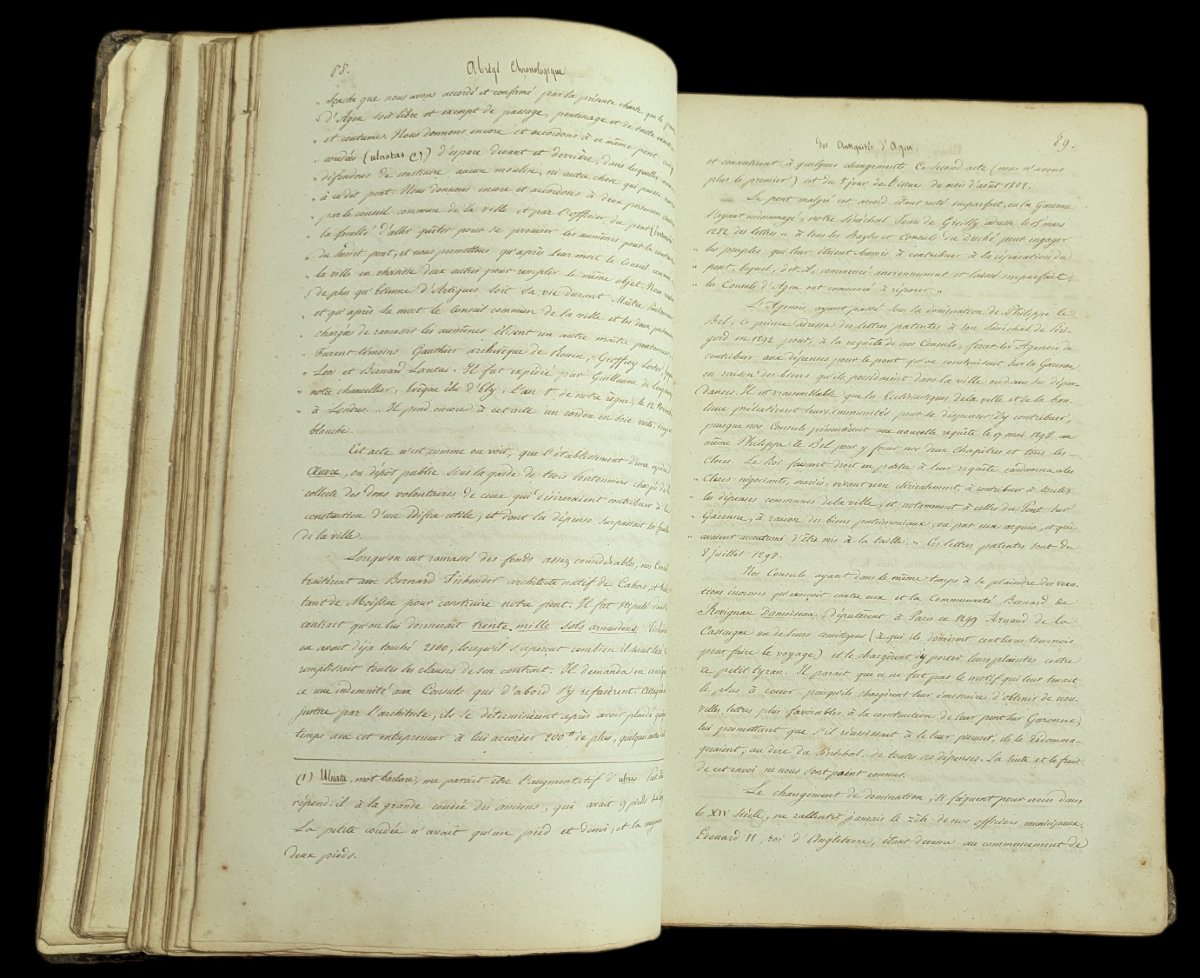 88.
Abrégé Chronologique
" Sçache que nous avons accordé et confirmé par la présente charte que le
" d'Agen soit libre et exempt de passage, pontonage et de toute
" et coutume. Nous donnons encore et accordons à ce même pont
" coudées (ulnatas (1)) d'espace devant et derrière, dans lesquelles nous
" défendons de construire aucun moulin, ni autre chose qui puisse
" à ce dit pont. Nous donnons encore et accordons à deux personnes
" par le conseil commun de la ville et par l'officier du pont
" la faculté d'aller quêter pour se procurer les aumônes pour la
" du susdit pont, et nous permettons qu'après leur mort le Conseil
" la ville en choisisse deux autres pour remplir le même objet. Nous
" de plus qu'Etienne d'Artigues soit sa vie durant Maître
" et qu'après sa mort le Conseil commun de la ville et les deux
" chargés de ramasser les aumônes élisent un autre maître
" Furent témoins Gauthier archevêque de Rouen, Geoffroy
" Loex et Bernard Lantas. Il fut expédié par Guillaume de
" notre chancellier, évêque élu d'Ely, l'an 1er de notre règne, le 12
" à Londres... Il pend encore à cet acte un cordon en soie verte,
blanche.
Cet acte n'est comme on voit, que l'établissement d'une
Œuvre, ou dépôt public sous la garde de trois Pontonniers chargés de
collecte des dons volontaires de ceux qui désireraient contribuer à la
construction d'un Edifice utile, et dont la dépense surpassait les
de la ville.
Lorsqu'on eut ramassé des fonds assez considérables, nos
traitèrent avec Bernard architecte natif de Cahors, et
tant de Moissac pour construire notre pont. Il fut stipulé dans
contract qu'on lui donnerait trente mille sols arnaudens.
en avait déja touché 2100, lorsqu'il s'aperçut combien il
remplissait toutes les clauses de son contract. Il demanda en
ce une indemnité aux Consuls qui d'abord s'y refusèrent.
justice par l'architecte, ils se déterminèrent après avoir plaidé
temps avec cet entrepreneur à lui accorder 200 de plus, quelques
(1) Ulnata, mot barbare, me parait être l'augmentatif d'ulnas
répond-il à la grande coudée des anciens, qui avait 9 pieds
La petite coudée n'avait qu'un pied et demi, et la
deux pieds.
Des Antiquités d'Agen
89.
et consentirent à quelques changements. Ce second acte (nous n'avons
plus le premier) est du 5e jour de l'issue du mois d'août
Le pont malgré cet accord étant resté imparfait, ou la Garonne
l'ayant endommagé, notre Sénéchal Jean de Greilly adressa le 15 mars
1282 des lettres " à tous les Bayles et Consuls du Duché pour engager
" les peuples qui leur étaient soumis à contribuer à la réparation du
" pont, lequel, dit-il, commencé anciennement et laissé imparfait,
" les Consuls d'Agen ont commencé à réparer. "
L'Agenois ayant passé sous la domination de Philippe le
Bel, ce prince adressa des lettres patentes à son Sénéchal de
en 1292 pour, à la requête de nos Consuls, forcer les Agenois de
contribuer aux dépenses pour le pont qu'on construisait sur la Garonne
en raison des biens qu'ils possédaient dans la ville ou dans ses dépen-
dances. Il est vraisemblable que les Ecclésiastiques de la ville et de la ban-
lieue prétextèrent leurs immunités pour se dispenser d'y contribuer,
puisque nos Consuls présentèrent une nouvelle requête le 17 mars 1298 au
même Philippe le Bel pour y forcer nos deux Chapitres et tous les
Clercs. Le Roi faisant droit en partie à leur requête condamna les
" Clercs négociants, mariés, vivant non cléricalement, à contribuer à toutes
" les dépenses communes de la ville, et notamment à celles du Pont sur
" Garonne, à raison des biens patrimoniaux, ou par eux acquis, et qui
avaient accoutumé d'être mis à la taille. " Ces lettres patentes sont du
8 juillet 1298.
Nos Consuls ayant dans le même temps à se plaindre des vexa-
tions énormes qu'exerçoit contre eux et la Communauté Bernard de
Rovignan Damoiseau, députèrent à Paris en 1299 Arnaud de la
Cassaigne un de leurs concitoyens (à qui ils donnèrent cent livres tournois
pour faire le voyage) et le chargèrent d'y porter leurs plaintes contre
ce petit tyran. Il parait que ce ne fut pas le motif qui leur tenait
le plus à cœur, puisqu'ils chargèrent leur émissaire d'obtenir de nou-
velles lettres plus favorables à la construction de leur pont sur Garonne,
lui promettant que s'il réussissait à le leur procurer, ils le dédomma-
geraient, au dire du Sénéchal, de toutes ses dépenses. La suite et le fruit
de cet envoi ne nous sont point connus.
Le changement de domination, si fréquent pour nous dans
le XIVe siècle, ne rallentit jamais le zèle de nos officiers municipaux.
Edouard II, roi d'Angleterre, étant devenu au commencement de